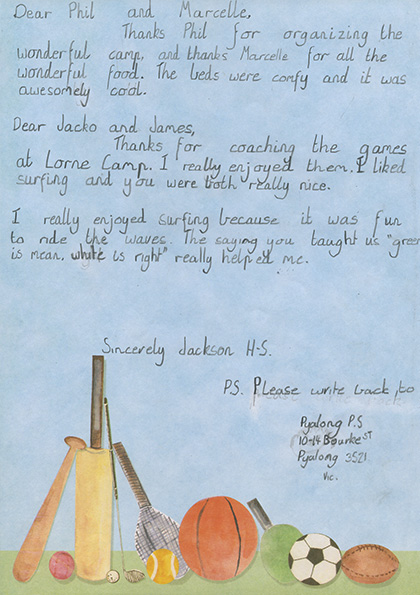 Dear Phil and Marcelle,
Thanks Phil for organizing the
wonderful camp, and thanks Marcelle for all the
wonderful food. The beds were comfy and it was
awesomely cool.
Dear Jacko and James,
Thanks for coaching the games
at Lorne Camp. I really enjoyed them. I liked
surfing and you were both really nice.
I really enjoyed surfing because it was fun
to ride the waves. The saying you taught us "green
is mean, white is right" really helped me.
Sincerely Jackson H-S.
P.S. Please write back to
Pyalong P.S
10-14 Bourke ST
Pyalong 3521
Vic.